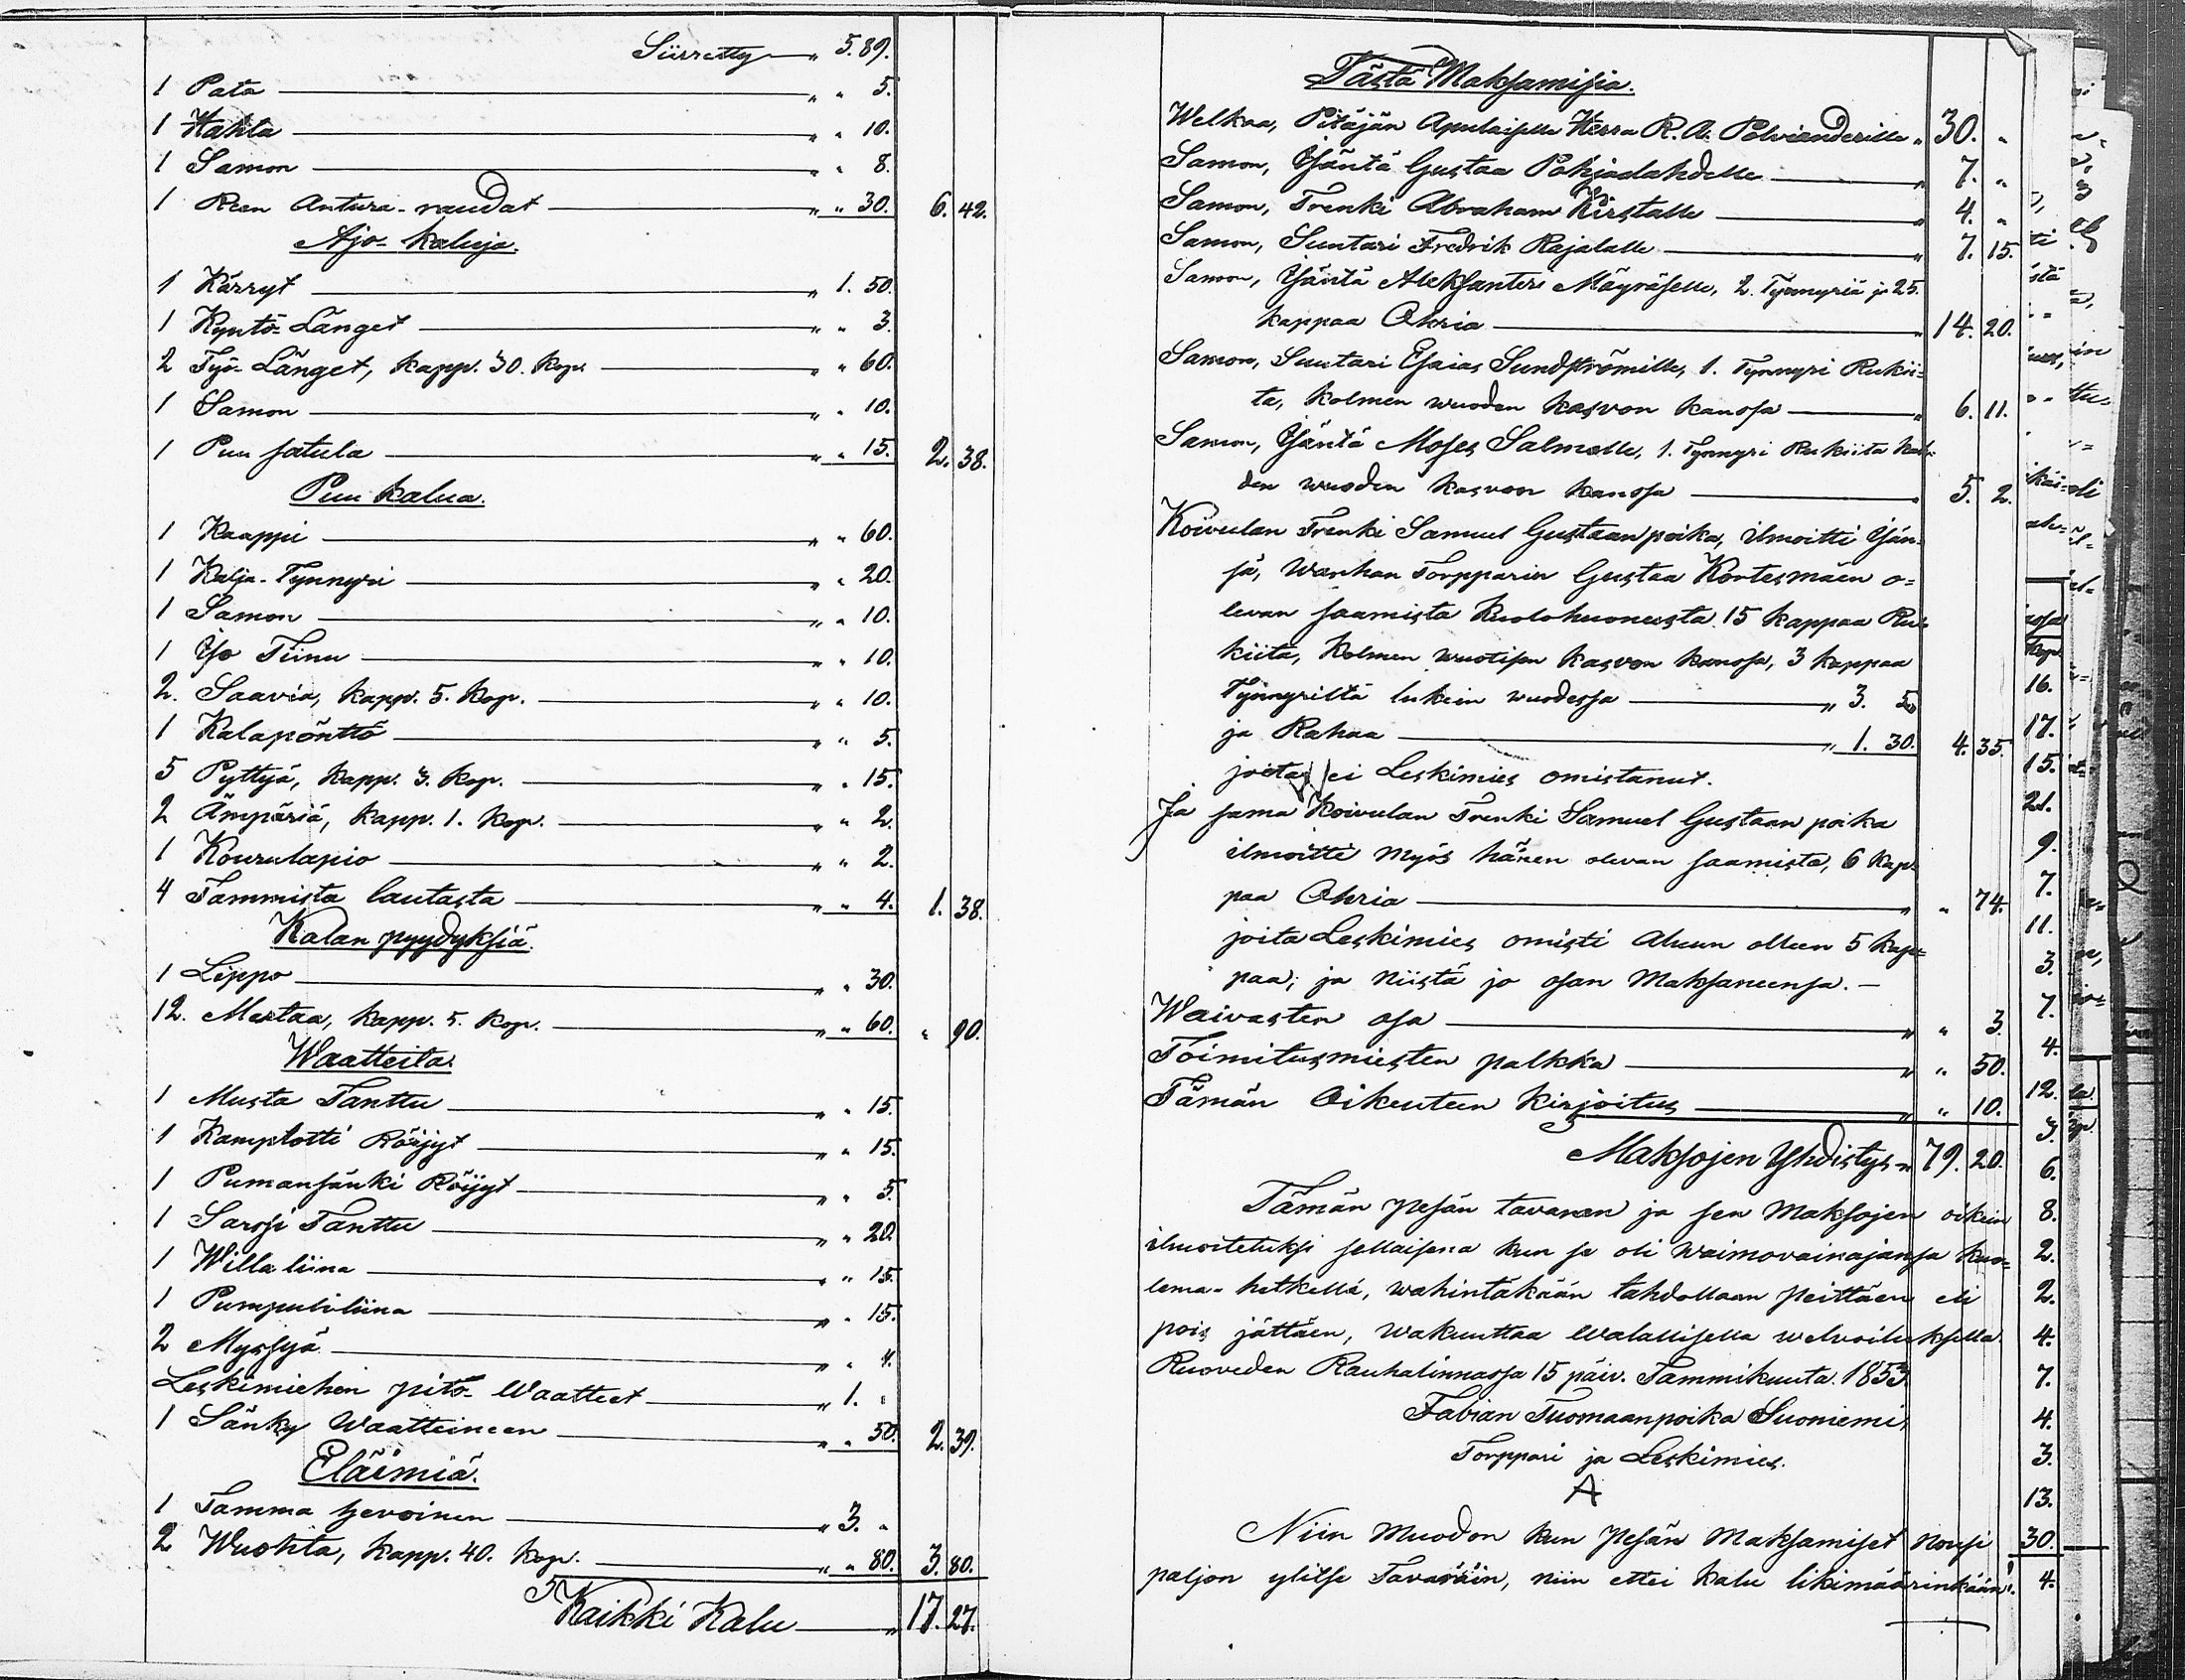 Siirretty „ 5. 89.
1 Pata „ „ 5.
1 Hahla „ „ 10.
1 Samon „ „ 8.
1 Reen Antura-raudat „ „ 30. 6. 42.
Ajo-kaluja.
1 Kärryt „ 1. 50.
1 Kyntö-Länget „ „ 3.
2 Työ-Länget, kapp. 30. kop. „ „ 60.
1 Samon „ „ 10.
1 Puu satula „ „ 15. 2. 38.
Puu kalua.
1 Kaappi „ „ 60.
1 Kalja-Tynnyri „ „ 20.
1 Samon „ „ 10.
1 Iso Tiinu „ „ 10.
2. Saavia, kapp. 5. kop. „ „ 10.
1 Kalapönttö „ „ 5.
5 Pyttyä, kapp. 3. kop. „ „ 15.
2 Ämpäriä, kapp. 1. kop. „ „ 2.
1 Kourulapio „ „ 2.
4 Tammista lautasta „ „ 4. 1. 38.
Kalan pyydyksiä.
1 Lippo „ „ 30.
12. Mertaa, kapp. 5. kop. „ „ 60. „ 90.
Waatteita.
1 Musta Tanttu „ „ 15.
1 Kamplotti Röijyt „ „ 15.
1 Pumansänki Röijyt „ „ 5.
1 Sarssi Tanttu „ „ 20.
1 Willa liina „ „ 15.
1 Pumpuliliina „ „ 15.
2 Myssyä „ „ 4.
Leskimiehen pito-Waatteet „ 1. „
1 Sänky Waatteineen „ „ 50. 2. 39.
Eläimiä.
1 Tamma hevoinen „ 3. „
2 Wuohta, kapp. 40. kop. „ „ 80. 3. 80.
Kaikki Kalu „ 17. 27.
Tästä Maksamisia.
Welkaa, Pitäjän Apulaiselle Herra R. A. Polvianderille „ 30. „
Samon, Isäntä Gustaa Pohjadahdelle „ 7. „
Samon, Trenki Abraham Kirstalle „ 4. „
Samon, Suutari Fredrik Rajalalle „ 7. 15.
Samon, Isäntä Aleksanteri Mäyräselle, 2. Tynnyriä ja 25.
kappaa Ohria „ 14. 20.
Samon, Suutari Esaias Sundströmille, 1. Tynnyri Rukii-
ta, kolmen wuoden kasvon kanssa „ 6. 11.
Samon, Isäntä Moses Salmelle, 1. Tynnyri Rukiita kah-
den wuoden kasvon kanssa „ 5. 2.
Koivulan Trenki Samuel Gustaanpoika, ilmoitti Isän-
sä, Wanhan Torpparin Gustaa Kortesmäen o-
levan saamista Kuolohuoneesta 15 kappaa Ru-
kiita, Kolmen wuotisen kasvon kanssa, 3 kappaa
Tynnyriltä lukein wuodessa „ 3. 5.
ja Rahaa „ 1. 30. 4. 35.
joita ei Leskimies omistanut.
Ja sama Koivulan Trenki Samuel Gustaan poika
ilmoitti myös hänen olevan saamista, 6 kap-
paa Ohria „ „ 74.
joita Leskimies omisti Aluun olleen 5 kap-
paa; ja niistä jo osan Maksaneensa. —
Waivasten osa „ „ 3.
Toimitusmiesten palkka „ „ 50.
Tämän Oikeuteen kirjoitus „ „ 10.
Maksojen Yhdistys „ 79. 20.
Tämän Pesän tavaran ja sen Maksojen oikein
ilmoitetuksi sellaisena kun se oli waimovainajansa kuo-
lema-hetkellä, wähintäkään tahdollaan peittäen eli
pois jättäen, wakuuttaa Walallisella welvoituksella.
Ruoveden Rauhalinnassa 15 päiv. Tammikuuta 1853.
Fabian Tuomaanpoika Suoniemi,
Torppari ja Leskimies.
A
Niin Muodon kun Pesän Maksamiset nousi
paljon ylitse Tavaräin, niin ettei kalu likimäärinkään
kop.
16.
17.
15.
21.
9.
7.
11.
3.
7.
4.
12.
3.
6.
8.
2.
2.
4.
7.
4.
3.
13.
30.
4.